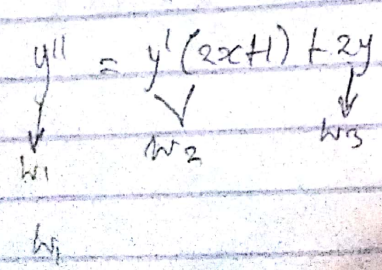 y'' = y'(2x+1) + 2y
w1 w2 w3
w1